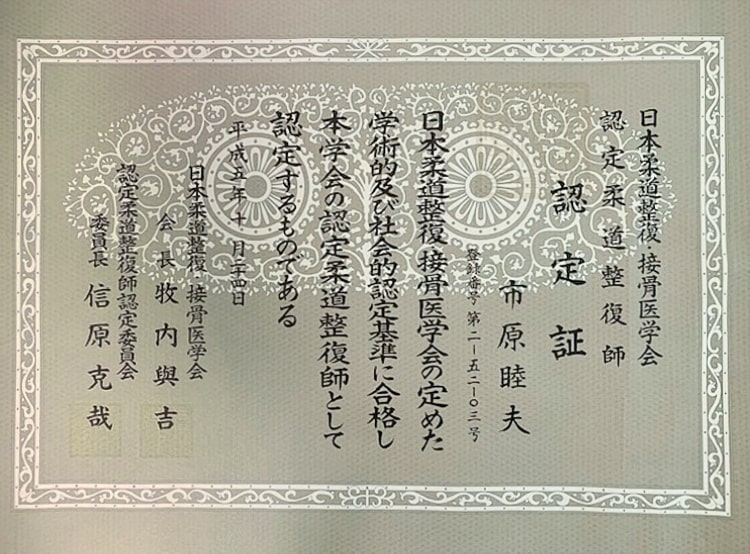 日本柔道整復・接骨医学会
認定柔道整復師
認定証
市原睦夫
登録番号第二ー五二ー〇三号
日本柔道整復・接骨医学会の定めた
学術的及び社会的認定基準に合格し
本学会の認定柔道整復師として
認定するものである
平成五年十月二十四日
日本柔道整復・接骨医学会
会長牧内與吉
認定柔道整復師認定委員会
委員長信原克哉